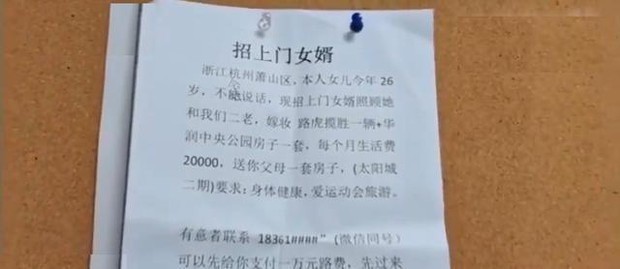 招上门女婿
浙江杭州萧山区,本人女儿今年 26
岁,不会说话,现招上门女婿照顾她
和我们二老,嫁妆 路虎揽胜一辆+华
润中央公园房子一套,每个月生活费
20000,送你父母一套房子,(太阳城
二期)要求:身体健康,爱运动会旅游。
有意者联系 18361####"(微信同号)
可以先给你支付一万元路费,先过来